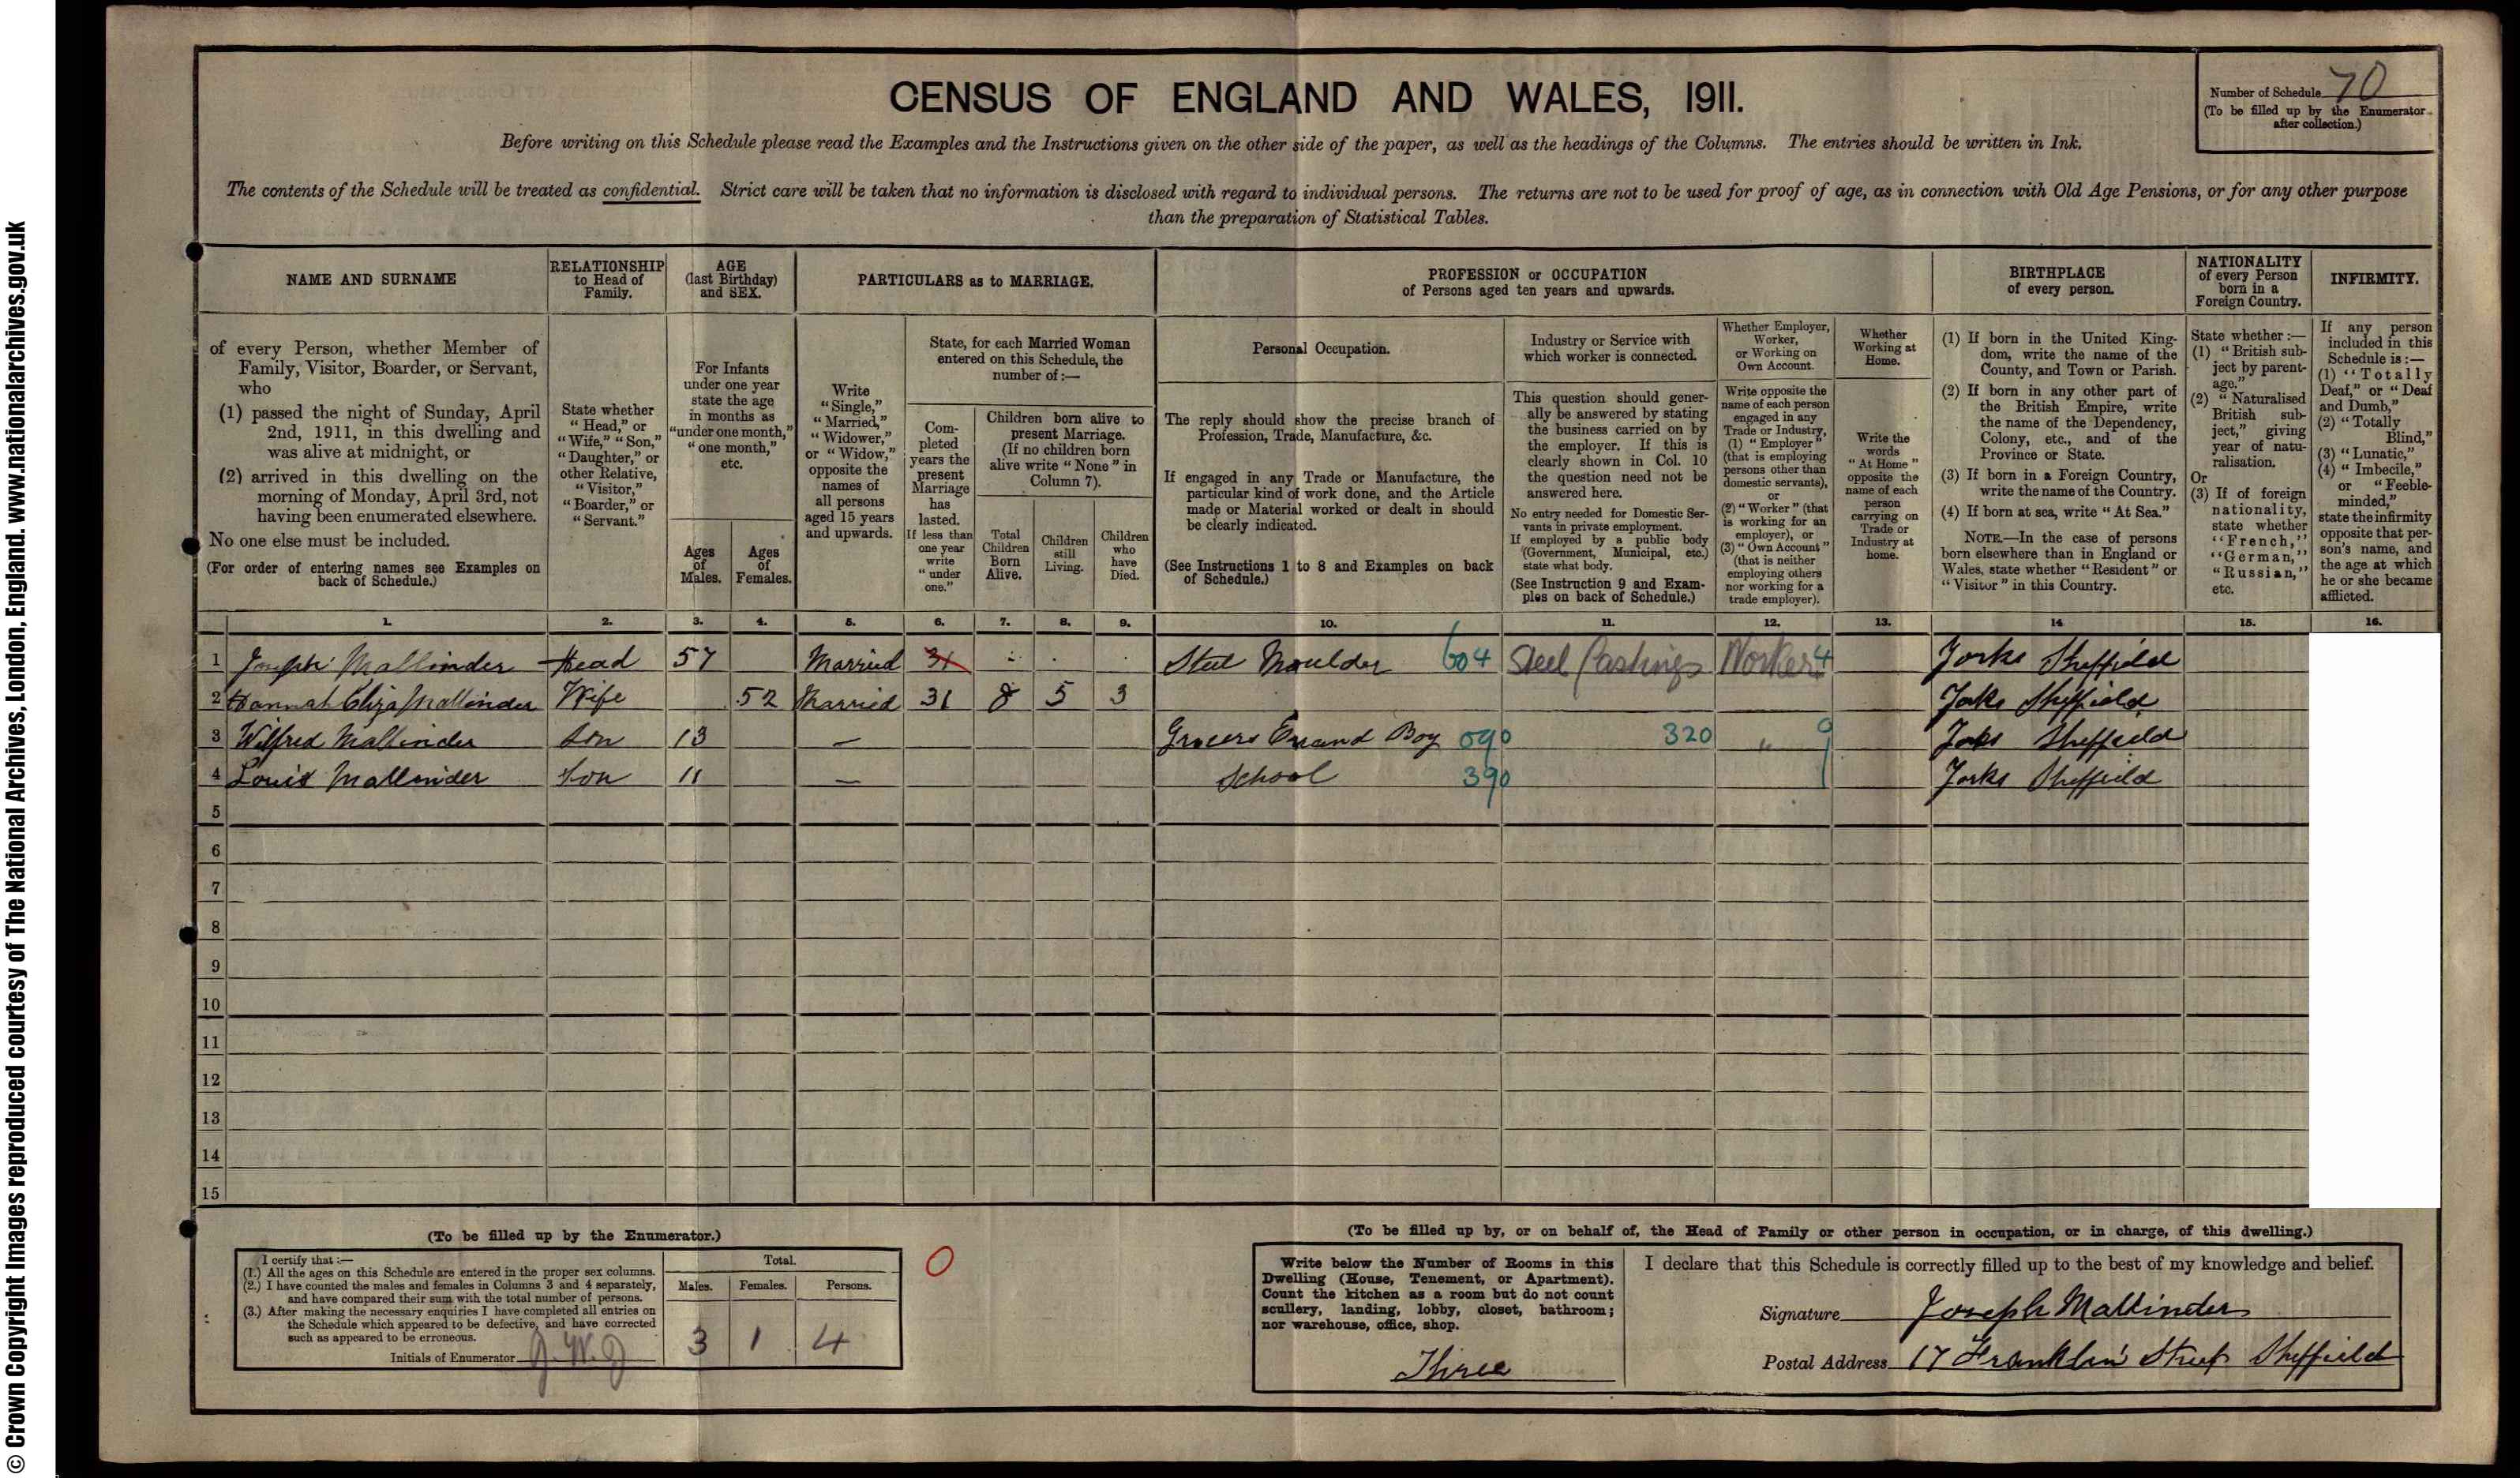 © Crown Copyright Images reproduced courtesy of The National Archives, London, England. www.nationalarchives.gov.uk
CENSUS OF ENGLAND AND WALES, 1911.
Number of Schedule 70
(To be filled up by the Enumerator
after collection.)
Before writing on this Schedule please read the Examples and the Instructions given on the other side of the paper, as well as the headings of the Columns. The entries should be written in Ink.
The contents of the Schedule will be treated as confidential. Strict care will be taken that no information is disclosed with regard to individual persons. The returns are not to be used for proof of age, as in connection with Old Age Pensions, or for any other purpose
than the preparation of Statistical Tables.
NAME AND SURNAME
of every Person, whether Member of
Family, Visitor, Boarder, or Servant,
who
(1) passed the night of Sunday, April
2nd, 1911, in this dwelling and
was alive at midnight, or
(2) arrived in this dwelling on the
morning of Monday, April 3rd, not
having been enumerated elsewhere.
No one else must be included.
(For order of entering names see Examples on
back of Schedule.)
RELATIONSHIP
to Head of
Family.
State whether
"Head," or
"Wife," "Son,"
"Daughter," or
other Relative,
"Visitor,"
"Boarder," or
"Servant."
AGE
(last Birthday)
and SEX.
For Infants
under one year
state the age
in months as
"under one month,"
"one month,"
etc.
Ages
of
Males.
Ages
of
Females.
PARTICULARS as to MARRIAGE.
Write
"Single,"
"Married,"
"Widower,"
or "Widow,"
opposite the
names of
all persons
aged 15 years
and upwards.
State, for each Married Woman
entered on this Schedule, the
number of:—
Com-
pleted
years the
present
Marriage
has
lasted.
If less than
one year
write
"under
one."
Children born alive to
present Marriage.
(If no children born
alive write "None" in
Column 7).
Total
Children
Born
Alive.
Children
still
Living.
Children
who
have
Died.
PROFESSION or OCCUPATION
of Persons aged ten years and upwards.
Personal Occupation.
The reply should show the precise branch of
Profession, Trade, Manufacture, &c.
If engaged in any Trade or Manufacture, the
particular kind of work done, and the Article
made or Material worked or dealt in should
be clearly indicated.
(See Instructions 1 to 8 and Examples on back
of Schedule.)
Industry or Service with
which worker is connected.
This question should gener-
ally be answered by stating
the business carried on by
the employer. If this is
clearly shown in Col. 10
the question need not be
answered here.
No entry needed for Domestic Ser-
vants in private employment.
If employed by a public body
(Government, Municipal, etc.)
state what body.
(See Instruction 9 and Exam-
ples on back of Schedule.)
Whether Employer,
Worker,
or Working on
Own Account.
Write opposite the
name of each person
engaged in any
Trade or Industry,
(1) "Employer"
(that is employing
persons other than
domestic servants),
or
(2) "Worker" (that
is working for an
employer), or
(3) "Own Account"
(that is neither
employing others
nor working for a
trade employer).
Whether
Working at
Home.
Write the
words
"At Home"
opposite the
name of each
person
carrying on
Trade or
Industry at
home.
BIRTHPLACE
of every person.
(1) If born in the United King-
dom, write the name of the
County, and Town or Parish.
(2) If born in any other part of
the British Empire, write
the name of the Dependency,
Colony, etc., and of the
Province or State.
(3) If born in a Foreign Country,
write the name of the Country.
(4) If born at sea, write "At Sea."
NOTE.—In the case of persons
born elsewhere than in England or
Wales, state whether "Resident" or
"Visitor" in this Country.
NATIONALITY
of every Person
born in a
Foreign Country.
State whether:—
(1) "British sub-
ject by parent-
age."
(2) "Naturalised
British sub-
ject," giving
year of natu-
ralisation.
Or
(3) If of foreign
nationality,
state whether
"French,"
"German,"
"Russian,"
etc.
INFIRMITY.
If any person
included in this
Schedule is:—
(1) "Totally
Deaf," or "Deaf
and Dumb,"
(2) "Totally
Blind,"
(3) "Lunatic,"
(4) "Imbecile,"
or "Feeble-
minded,"
state the infirmity
opposite that per-
son's name, and
the age at which
he or she became
afflicted.
1. 2. 3. 4. 5. 6. 7. 8. 9. 10. 11. 12. 13. 14 15. 16.
1 Joseph Mallinder Head 57 Married 31 Steel Moulder 604 Steel Castings Worker 4 Yorks Sheffield
2 Hannah Eliza Mallinder Wife 52 Married 31 8 5 3 Yorks Sheffield
3 Wilfred Mallinder Son 13 — Grocers Errand Boy 090 320 " 9 Yorks Sheffield
4 Louis Mallinder Son 11 — School 390 Yorks Sheffield
5
6
7
8
9
10
11
12
13
14
15
(To be filled up by the Enumerator.)
I certify that:—
(1.) All the ages on this Schedule are entered in the proper sex columns.
(2.) I have counted the males and females in Columns 3 and 4 separately,
and have compared their sum with the total number of persons.
(3.) After making the necessary enquiries I have completed all entries on
the Schedule which appeared to be defective, and have corrected
such as appeared to be erroneous.
Initials of Enumerator J.W.J
Total.
Males. Females. Persons.
3 1 4
0
(To be filled up by, or on behalf of, the Head of Family or other person in occupation, or in charge, of this dwelling.)
Write below the Number of Rooms in this
Dwelling (House, Tenement, or Apartment).
Count the kitchen as a room but do not count
scullery, landing, lobby, closet, bathroom;
nor warehouse, office, shop.
Three
I declare that this Schedule is correctly filled up to the best of my knowledge and belief.
Signature Joseph Mallinder
Postal Address 17 Franklin Street Sheffield